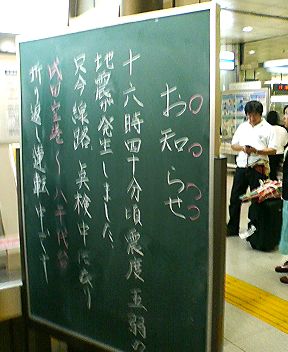 お知らせ
十六時四十分頃震度五弱の
地震が発生しました、
只今線路点検中になり
成田空港〜八千代台
折り返し運転中です